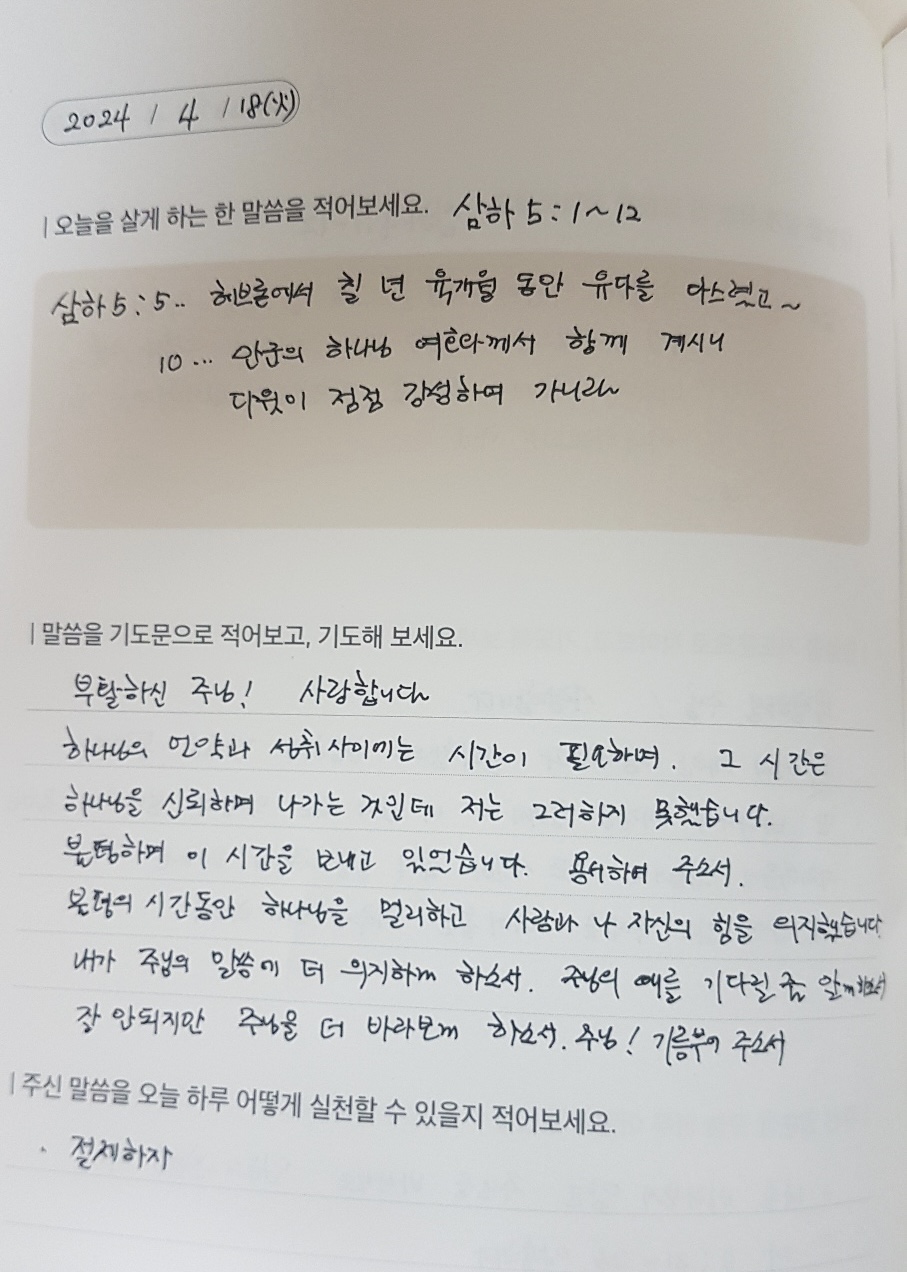 2024 / 4 / 18(火)
| 오늘을 살게 하는 한 말씀을 적어보세요. 삼하 5:1~12
삼하 5:5.. 헤브론에서 칠 년 육개월 동안 유다를 다스렸고~
10... 만군의 하나님 여호와께서 함께 계시니
다윗이 점점 강성하여 가니라~
| 말씀을 기도문으로 적어보고, 기도해 보세요.
부탁하신 주님! 사랑합니다
하나님의 언약과 성취 사이에는 시간이 필요하며. 그 시간은
하나님을 신뢰하며 나가는 것인데 저는 그러하지 못했습니다.
불평하며 이 시간을 보내고 있었습니다. 용서하여 주소서.
불평의 시간동안 하나님을 멀리하고 사람과 나 자신의 힘을 의지했습니다
내가 주님의 말씀에 더 의지하게 하소서. 주님의 때를 기다릴 줄 알게하소서
잘 안되지만 주님을 더 바라보게 하소서. 주님! 기름부어 주소서
| 주신 말씀을 오늘 하루 어떻게 실천할 수 있을지 적어보세요.
· 절제하자